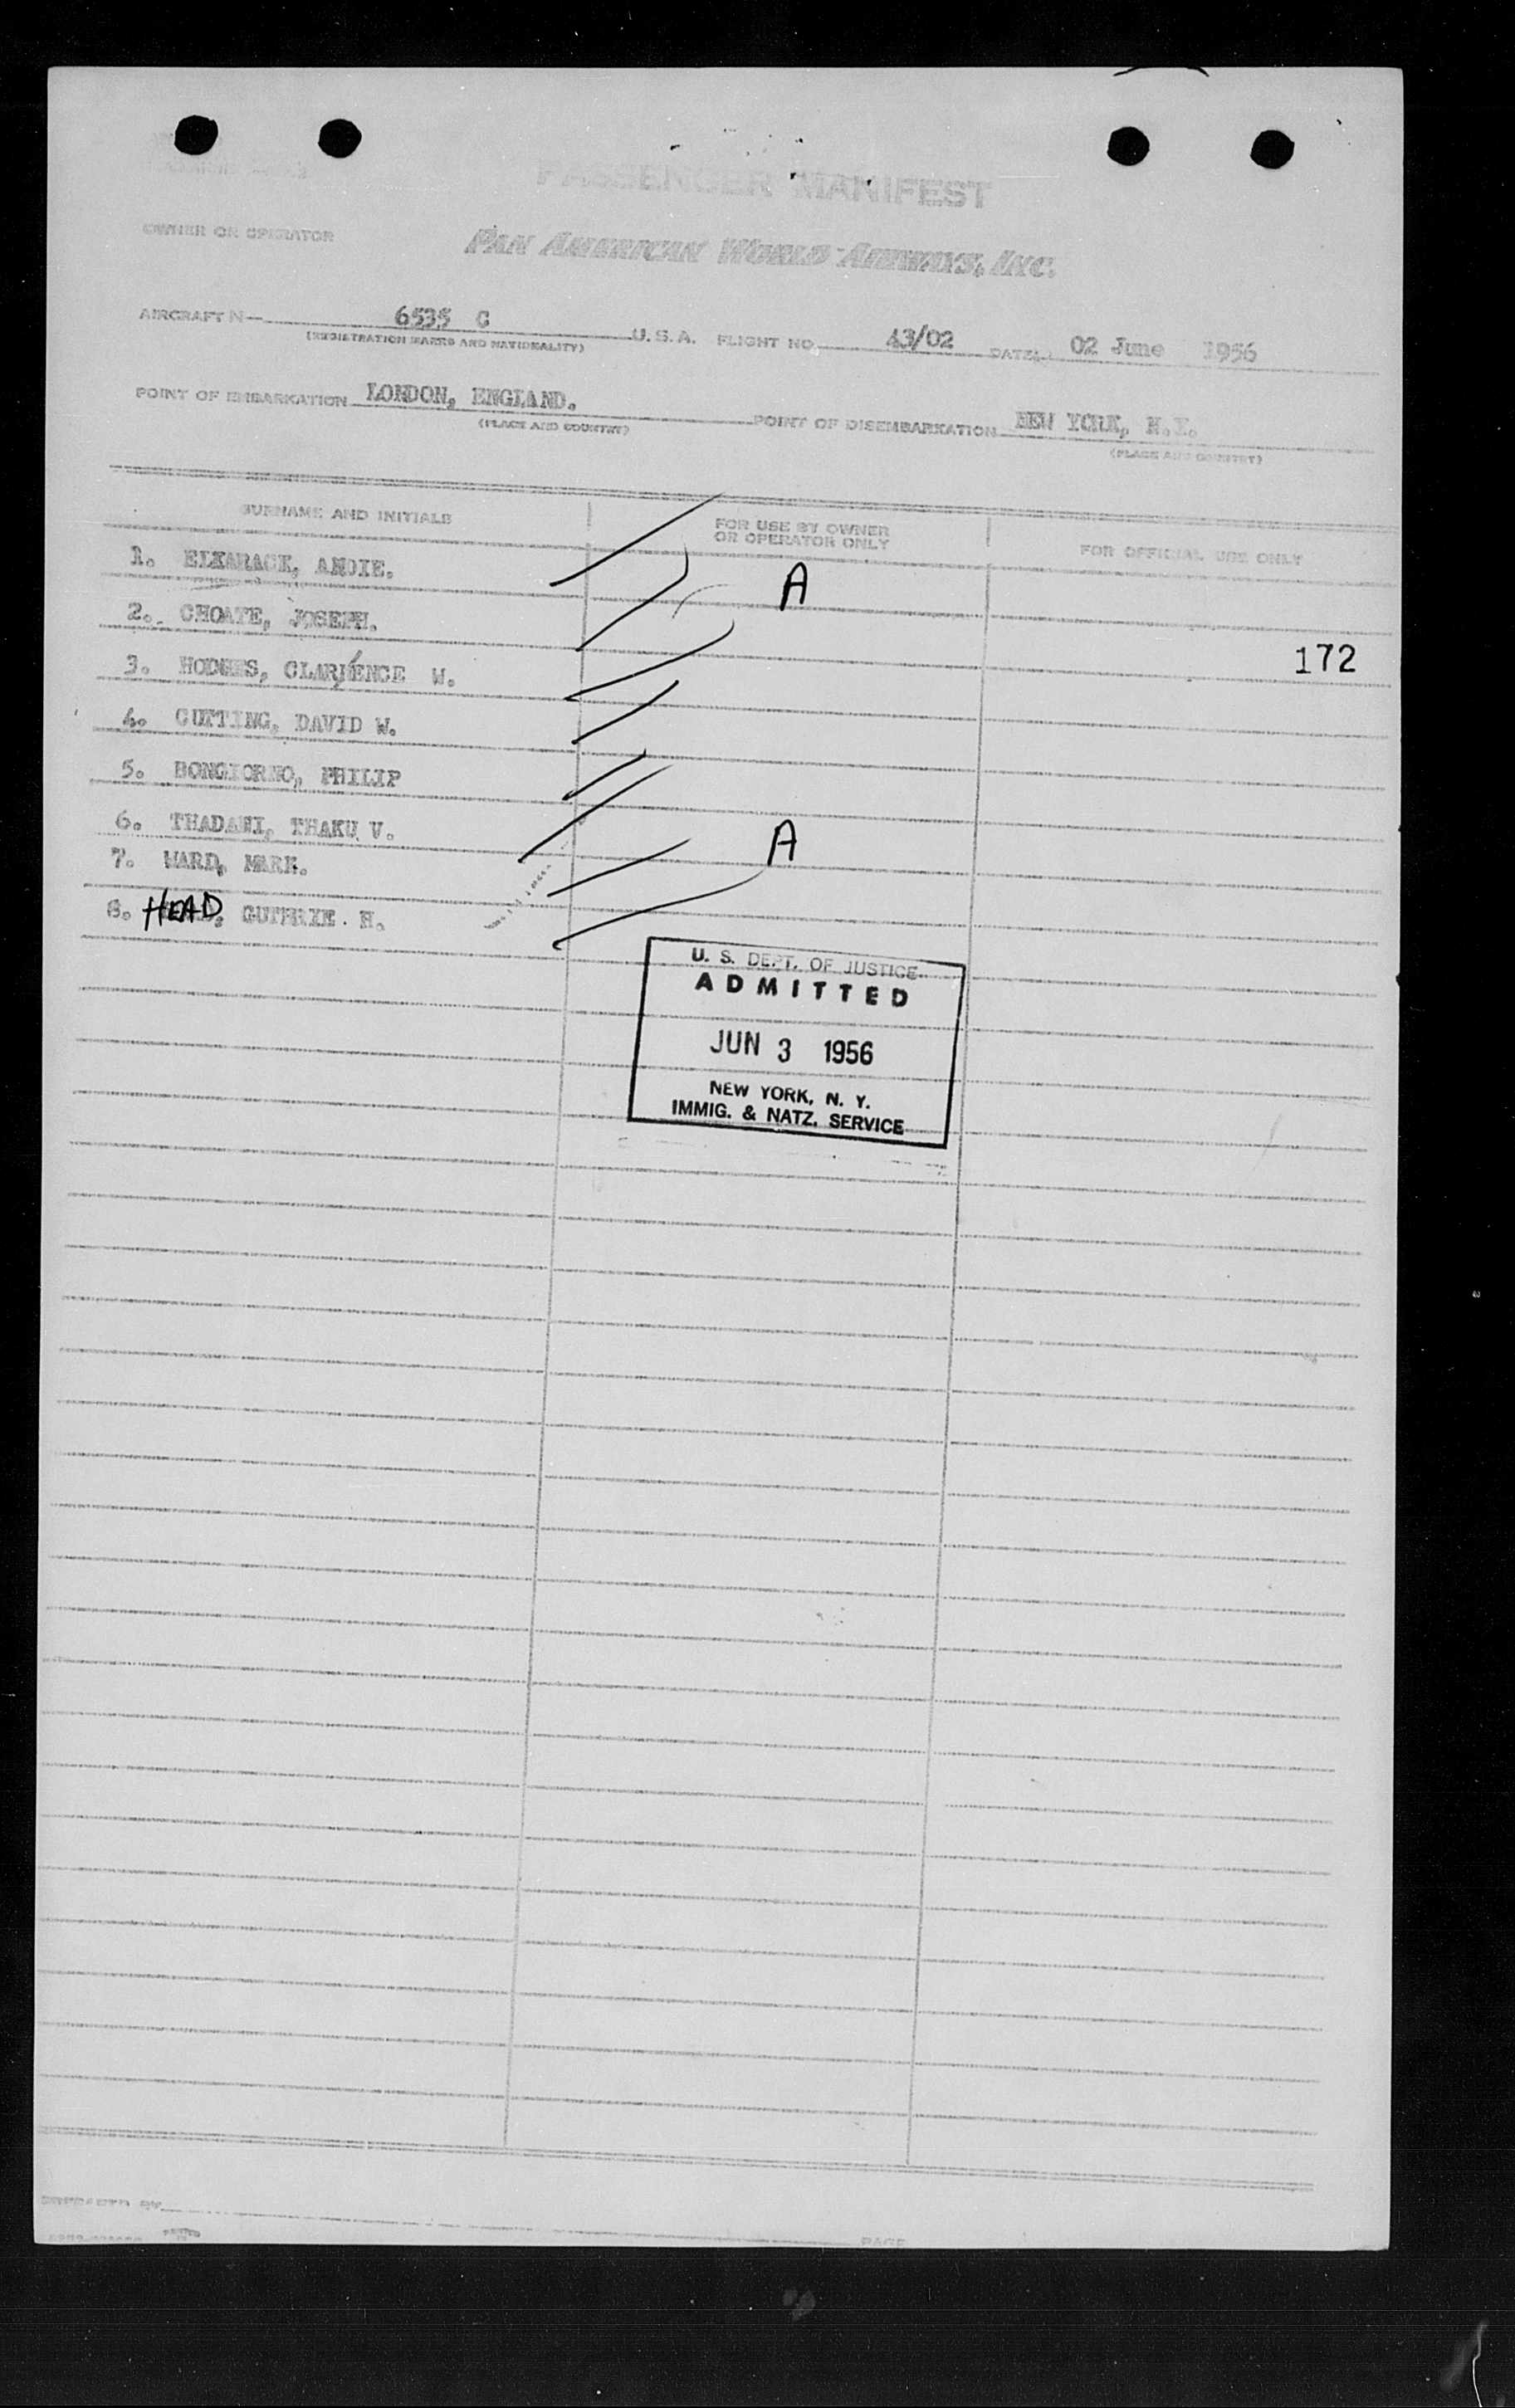 PASSENGER MANIFEST
OWNER OR OPERATOR
PAN AMERICAN WORLD AIRWAYS, INC.
AIRCRAFT N— 6535 C U.S.A. FLIGHT NO. 43/02 DATE 02 June 1956
(REGISTRATION MARKS AND NATIONALITY)
POINT OF EMBARKATION LONDON, ENGLAND. POINT OF DISEMBARKATION NEW YORK, N.Y.
(PLACE AND COUNTRY) (PLACE AND COUNTRY)
SURNAME AND INITIALS FOR USE BY OWNER OR OPERATOR ONLY FOR OFFICIAL USE ONLY
1. ANDIE.
A
2. CHOATE, JOSEPH.
172
3. HODGES, W.
4. CUTTING, DAVID W.
5. BONGIORNO, PHILIP
6. THADANI, THAKU V.
A
7. WARD, MARK.
8. HEAD, GUTHRIE. H.
U. S. DEPT. OF JUSTICE
ADMITTED
JUN 3 1956
NEW YORK, N. Y.
IMMIG. & NATZ. SERVICE
PAGE